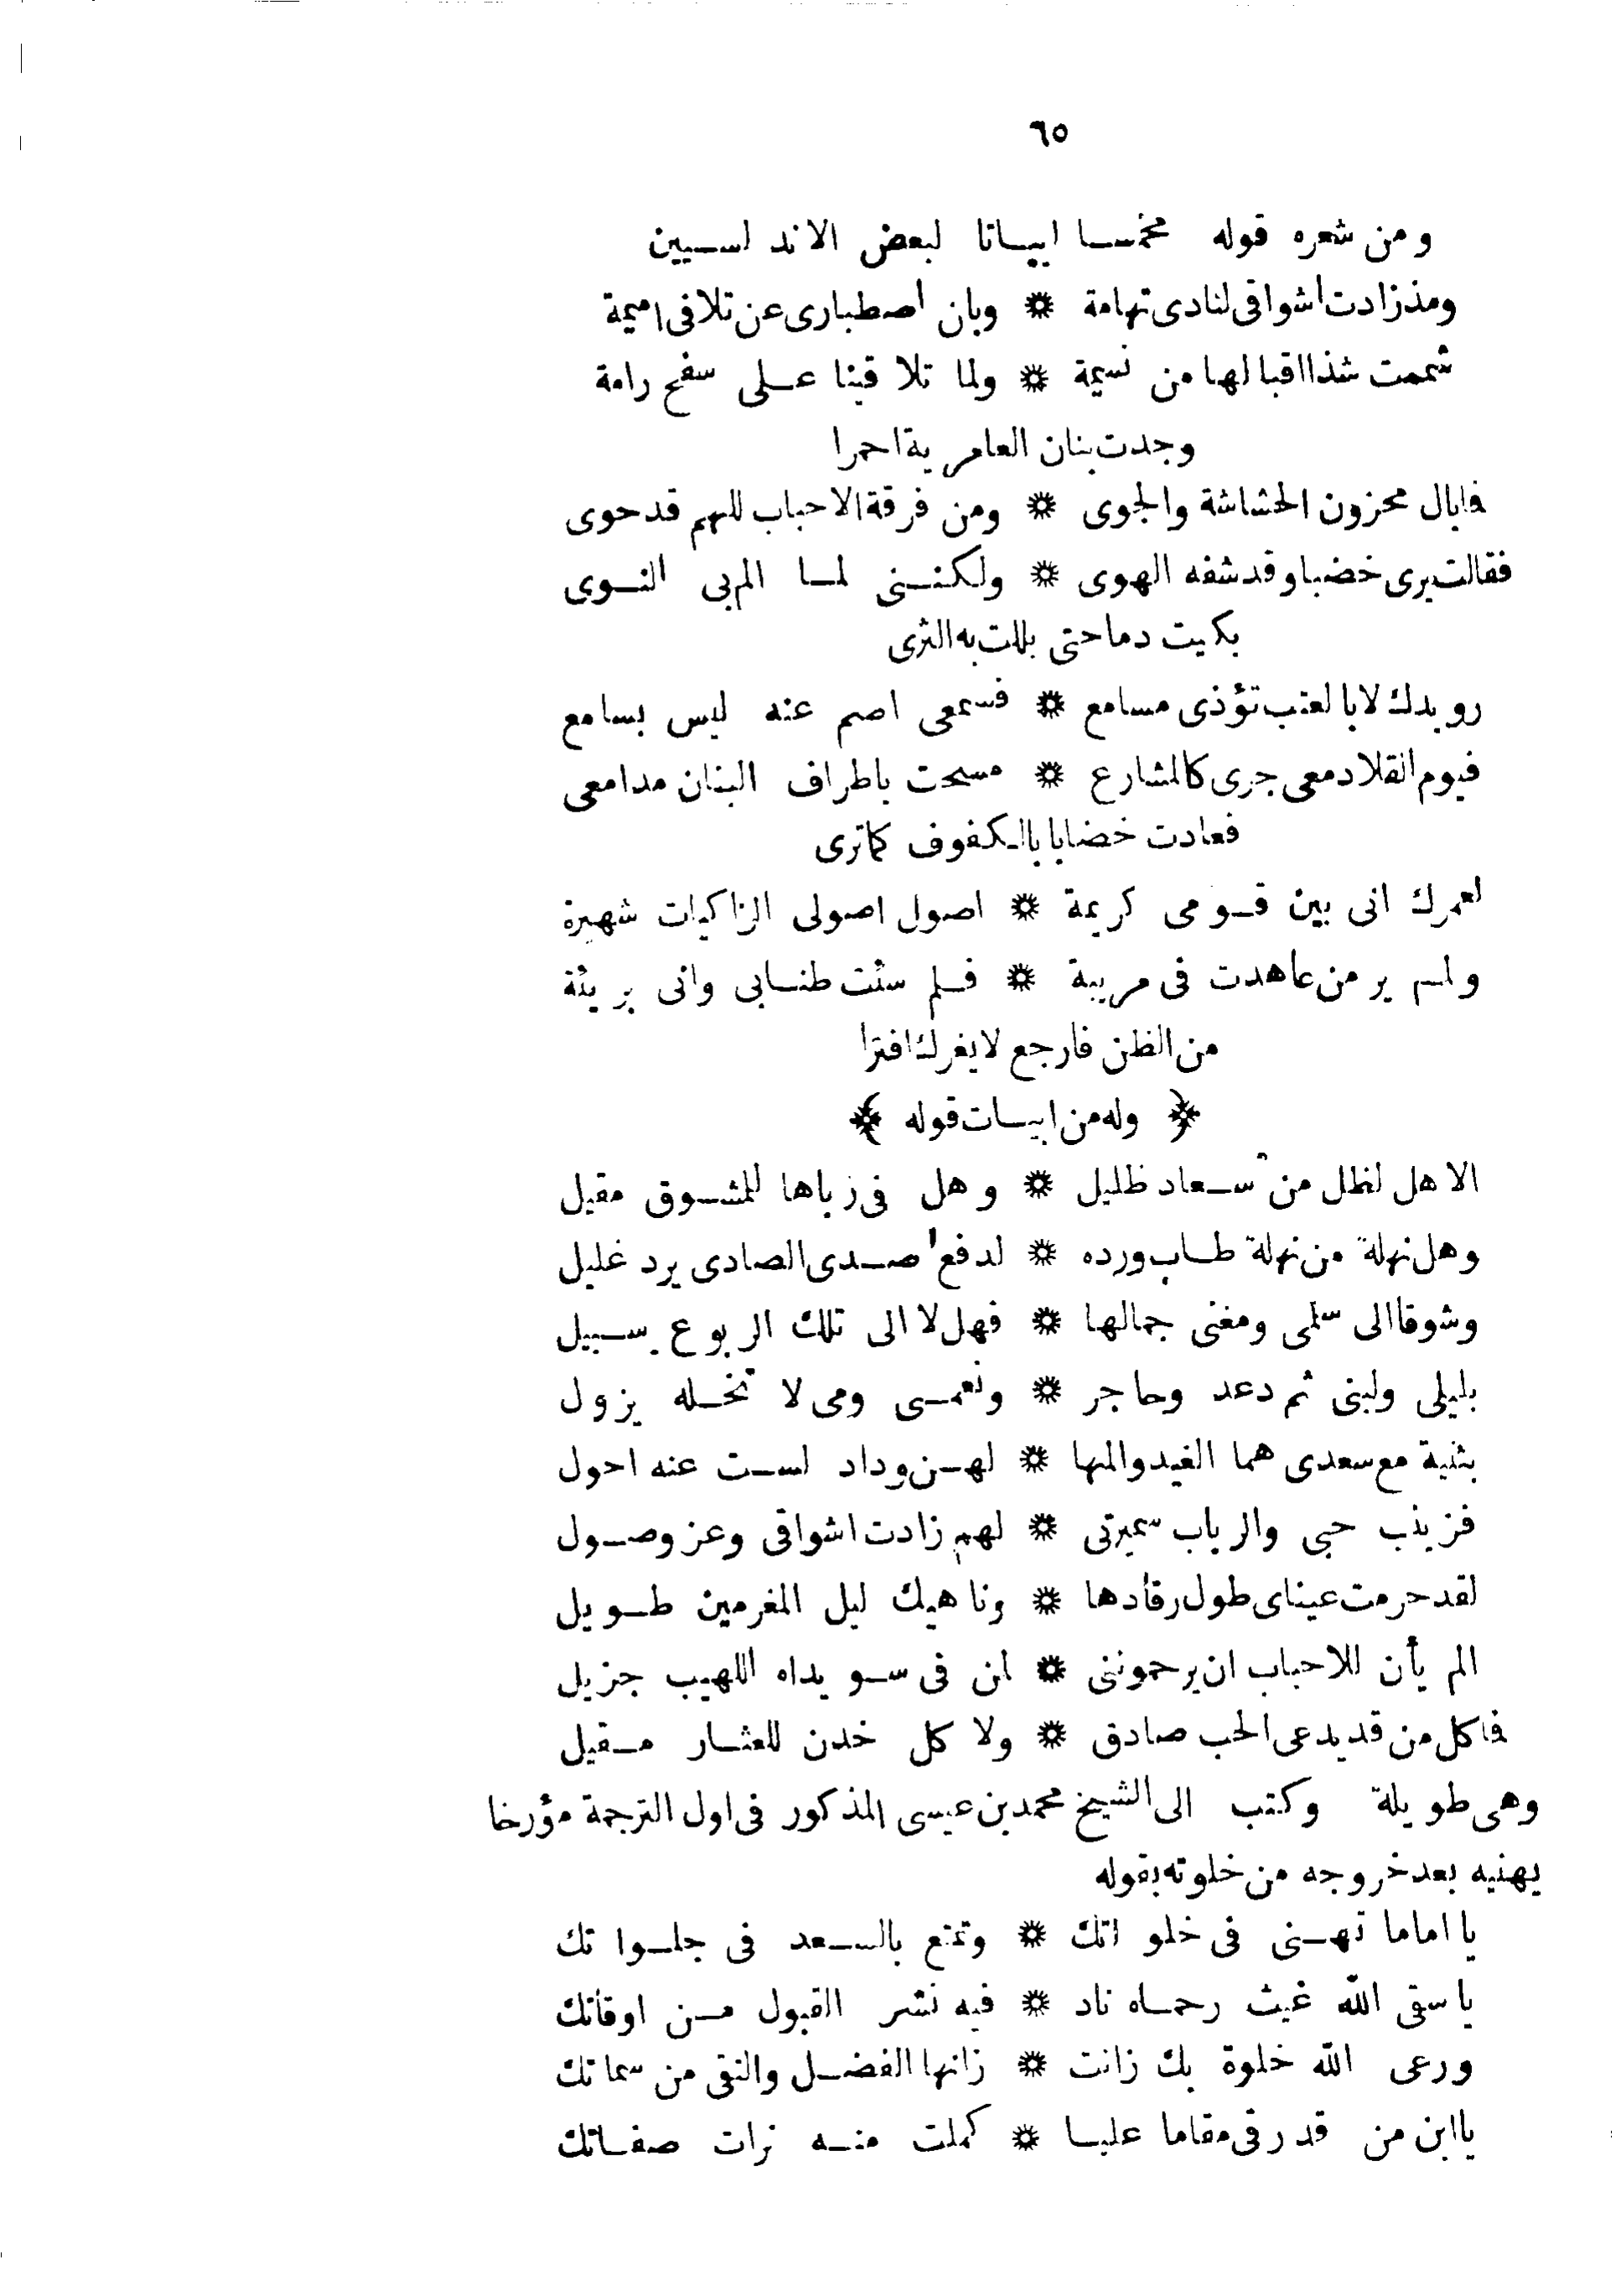 ٦٥
ومن شعره قوله مخمسا ابياتا لبعض الاندلسيين
ومذ زادت اشواقى لنادى تهامة * وبان اصطبارى عن تلافى اميمة
شممت شذا اقبالها من نسيمة * ولما تلاقينا على سفح رامة
وجدت بنان العامرية احمرا
فابال محزون الحشاشة والجوى * ومن فرقة الاحباب للهم قد حوى
فقالت يرى خضبا وقد شفه الهوى * ولكننى لما الم بى النوى
بكيت دما حتى بللت به الثرى
رويدك لا بالعتب تؤذى مسامع * فسمعى اصم عنه ليس بسامع
فيوم انقلا دمعى جرى كالمشارع * مسحت باطراف البنان مدامعى
فعادت خضابا بالكفوف كما ترى
لعمرك انى بين قومى كريمة * اصول اصولى الزاكيات شهيرة
ولم ير من عاهدت فى مريبة * فلم سئت ظنابى وانى بريئة
من الظن فارجع لا يغرك افترا
﴿ وله من ابيات قوله ﴾
الا هل لظل من سعاد ظليل * وهل فى رباها للمشوق مقيل
وهل نهلة من نهلة طاب ورده * لدفع صدى الصادى يرد غليل
وشوقا الى سلمى ومغنى جمالها * فهل لا الى تلك الربوع سبيل
بليلى ولبنى ثم دعد وحاجر * ونعمى ومى لا تخله يزول
بثنية مع سعدى هما الغيد والمها * لهن وداد لست عنه احول
فزينب حبى والرباب سميرتى * لهم زادت اشواقى وعز وصول
لقد حرمت عيناى طول رقادها * وناهيك ليل المغرمين طويل
الم يأن للاحباب ان يرحموننى * لمن فى سويداه اللهيب جزيل
فا كل من قد يدعى الحب صادق * ولا كل خدن للعثار مقيل
وهى طويلة وكتب الى الشيخ محمد بن عيسى المذكور فى اول الترجمة مؤرخا
يهنيه بعد خروجه من خلوته بقوله
يا اماما تهنى فى خلواتك * وتمتع بالسعد فى جلواتك
يا سقى الله غيث رحماه ناد * فيه نشر القبول من اوقاتك
ورعى الله خلوة بك زانت * زانها الفضل والتقى من سماتك
يا ابن من قد رقى مقاما عليا * كملت منه نرات صفاتك